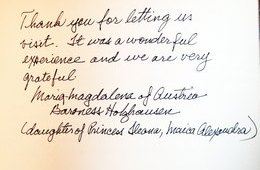 Thank you for letting us
visit. It was a wonderful
experience and we are very
grateful
Maria-Magdalena of Austria
Baroness Holzhausen
(daughter of Princess Ileana, Maica Alexandra)